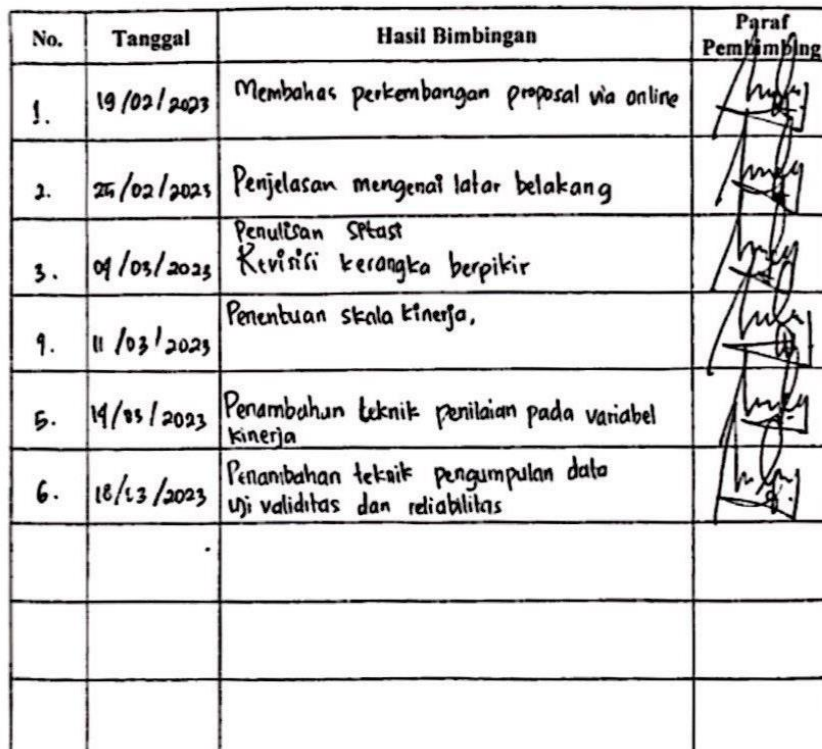 No. Tanggal Hasil Bimbingan Paraf
Pembimbing
1. 19/02/2023 Membahas perkembangan proposal via online
2. 25/02/2023 Penjelasan mengenai latar belakang
Penulisan Sitasi
3. 04/03/2023 Revisisi kerangka berpikir
4. 11/03/2023 Penentuan skala kinerja,
5. 14/03/2023 Penambahan teknik penilaian pada variabel
kinerja
6. 18/03/2023 Penambahan teknik pengumpulan data
uji validitas dan reliabilitas